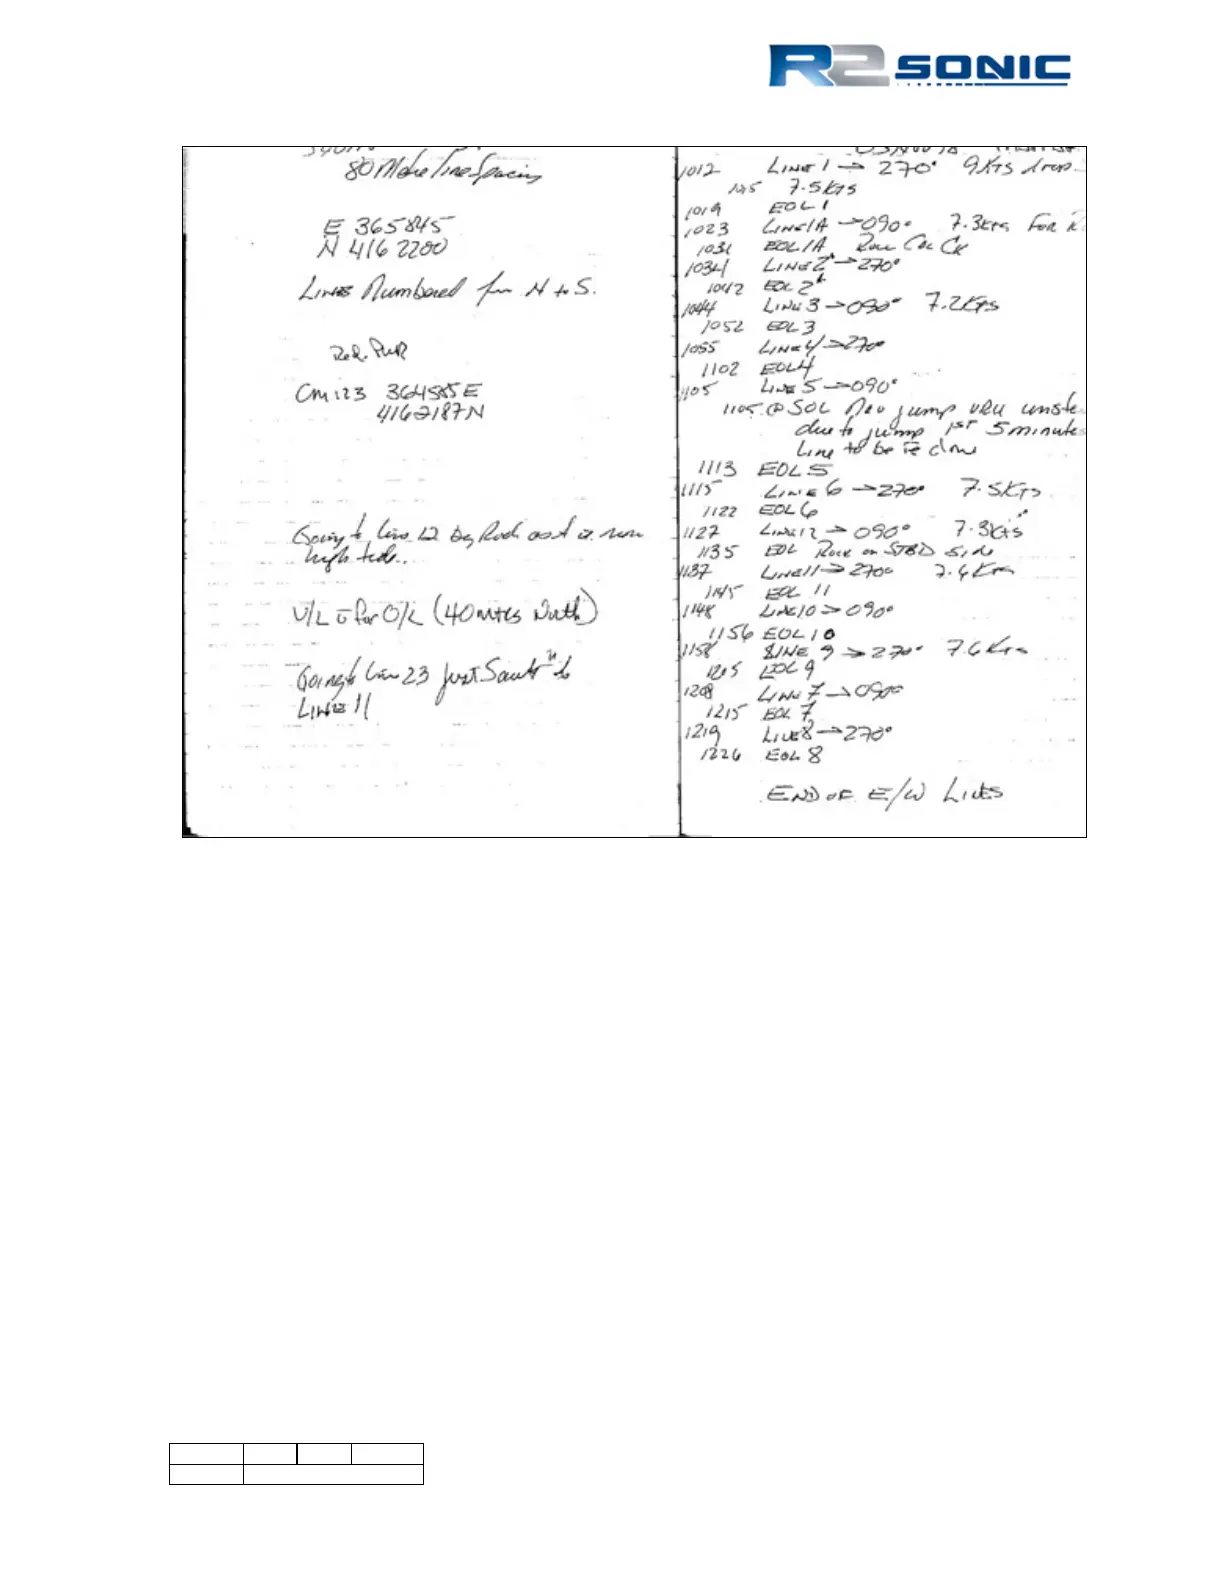 R2SONIC
80 Metre Line Spacing
E 365845
N 4162200
Lines Numbered from N to S.
Cm 123 364585 E
4162187 N
Going to Line 12 Big Rock and is now
high tide..
V/L for O/L (40 mtrs North)
Going to Line 23 Just South to
LINE 11
1012 LINE 1 → 270° 9Kts drop
7.5Kts
1019 EOL 1
1023 LINE 1A → 090° 7.3Kts FOR R
1031 EOL 1A Roll Cal Ck
1034 LINE 2 → 270°
1042 EOL 2
1044 LINE 3 → 090° 7.2KTS
1052 EOL 3
1055 LINE 4 → 270°
1102 EOL 4
1105 LINE 5 → 090°
1105 @ SOL Nav jump VRU unsta
due to jump 1ST 5 minutes
Line to be re done
1113 EOL 5
1115 LINE 6 → 270° 7.5KTS
1122 EOL 6
1127 LINE 12 → 090° 7.3KTS
1135 EOL Rock on STBD side
1137 LINE 11 → 270° 7.6KTS
1145 EOL 11
1148 LINE 10 → 090°
1156 EOL 10
1158 LINE 9 → 270° 7.6KTS
1205 EOL 9
1208 LINE 7 → 090°
1215 EOL 7
1219 LINE 8 → 270°
1226 EOL 8
END OF E/W LINES